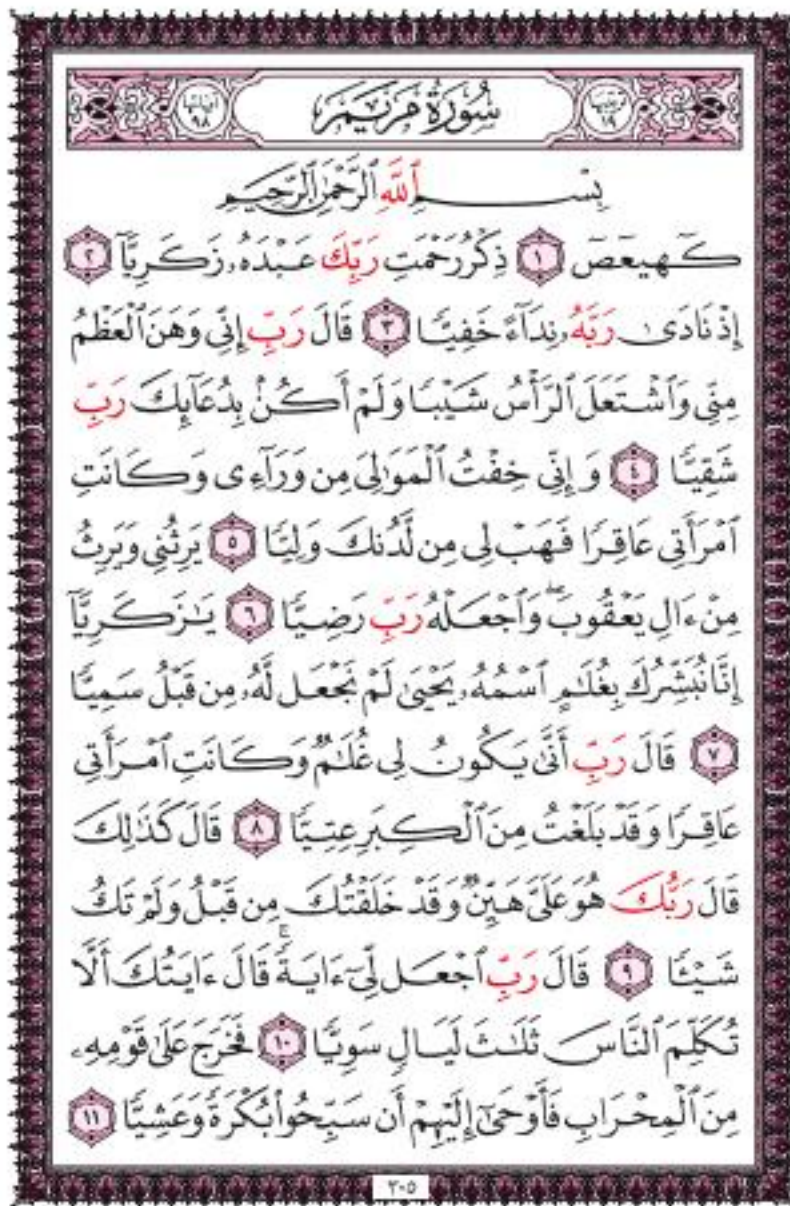 ترتيبها ١٩ سُورَةُ مَرْيَمَ آياتها ٩٨
بِسْمِ ٱللَّهِ ٱلرَّحْمَٰنِ ٱلرَّحِيمِ
كٓهيعٓصٓ ١ ذِكْرُ رَحْمَتِ رَبِّكَ عَبْدَهُۥ زَكَرِيَّآ ٢
إِذْ نَادَىٰ رَبَّهُۥ نِدَآءً خَفِيًّا ٣ قَالَ رَبِّ إِنِّى وَهَنَ ٱلْعَظْمُ
مِنِّى وَٱشْتَعَلَ ٱلرَّأْسُ شَيْبًا وَلَمْ أَكُنۢ بِدُعَآئِكَ رَبِّ
شَقِيًّا ٤ وَإِنِّى خِفْتُ ٱلْمَوَٰلِىَ مِن وَرَآءِى وَكَانَتِ
ٱمْرَأَتِى عَاقِرًا فَهَبْ لِى مِن لَّدُنكَ وَلِيًّا ٥ يَرِثُنِى وَيَرِثُ
مِنْ ءَالِ يَعْقُوبَ ۖ وَٱجْعَلْهُ رَبِّ رَضِيًّا ٦ يَٰزَكَرِيَّآ
إِنَّا نُبَشِّرُكَ بِغُلَٰمٍ ٱسْمُهُۥ يَحْيَىٰ لَمْ نَجْعَل لَّهُۥ مِن قَبْلُ سَمِيًّا
٧ قَالَ رَبِّ أَنَّىٰ يَكُونُ لِى غُلَٰمٌ وَكَانَتِ ٱمْرَأَتِى
عَاقِرًا وَقَدْ بَلَغْتُ مِنَ ٱلْكِبَرِ عِتِيًّا ٨ قَالَ كَذَٰلِكَ
قَالَ رَبُّكَ هُوَ عَلَىَّ هَيِّنٌ وَقَدْ خَلَقْتُكَ مِن قَبْلُ وَلَمْ تَكُ
شَيْـًٔا ٩ قَالَ رَبِّ ٱجْعَل لِّىٓ ءَايَةً ۚ قَالَ ءَايَتُكَ أَلَّا
تُكَلِّمَ ٱلنَّاسَ ثَلَٰثَ لَيَالٍ سَوِيًّا ١٠ فَخَرَجَ عَلَىٰ قَوْمِهِۦ
مِنَ ٱلْمِحْرَابِ فَأَوْحَىٰٓ إِلَيْهِمْ أَن سَبِّحُوا۟ بُكْرَةً وَعَشِيًّا ١١
٣٠٥